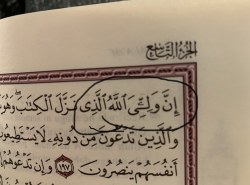 الجزء التاسع
إِنَّ وَلِـِّۧىَ ٱللَّهُ ٱلَّذِى نَزَّلَ ٱلْكِتَٰبَ ۖ وَهُوَ
وَٱلَّذِينَ تَدْعُونَ مِن دُونِهِۦ لَا يَسْتَطِيعُونَ
أَنفُسَهُمْ يَنصُرُونَ ١٩٧ وَإِن تَدْعُوهُمْ